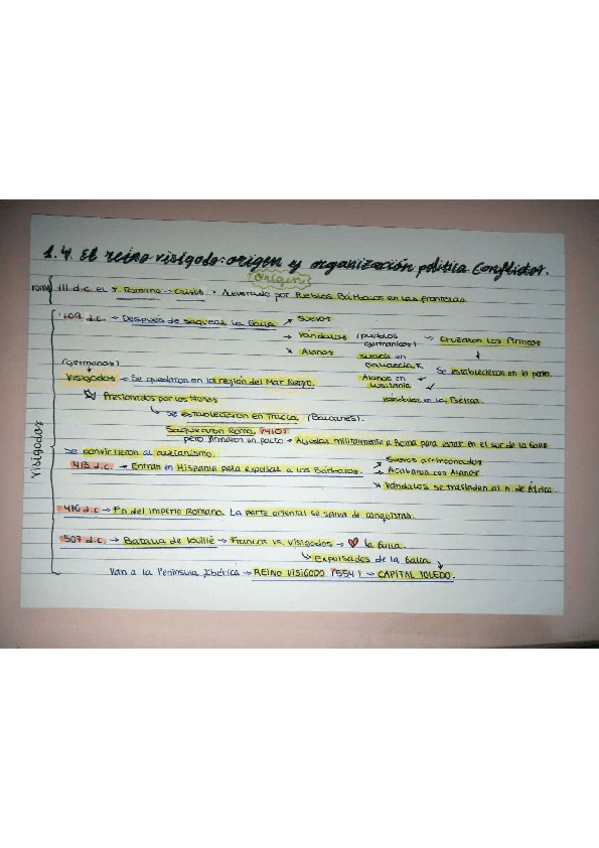 1.4. El reino visigodo: origen y organización política. Conflictos.
Origen
roma III d.c. el I. Romano → Crisis → Acelerado por Pueblos Bárbaros en las fronteras
409 d.c. → Después de saquear la Galia → Suevos
→ Vándalos (pueblos germánicos) → Cruzaron los Pirineos
→ Alanos
Suevos en Gallaecia
Alanos en Lusitania
Vándalos en la Bética.
Se establecieron en la penín.
(germanos)
Visigodos → Se quedaron en la región del Mar Negro.
Presionados por los Hunos
→ Se establecieron en Tracia (Balcanes).
Saquearon Roma (410)
pero firmaron un pacto → Ayudas militarmente a Roma para estar en el sur de la Galia
Se convirtieron al arrianismo.
415 d.c. → Entran en Hispania para expulsar a los Bárbaros.
→ Suevos arrinconados
→ Acabaron con Alanos
→ Vándalos se trasladan al n de África.
476 d.c → Fin del imperio Romano. La parte oriental se salva de conquistas.
507 d.c. → Batalla de Vouillé → Francos vs. visigodos → ♥ la Galia.
→ Expulsados de la Galia
Van a la Península Ibérica → REINO VISIGODO (554) → CAPITAL TOLEDO.
visigodos